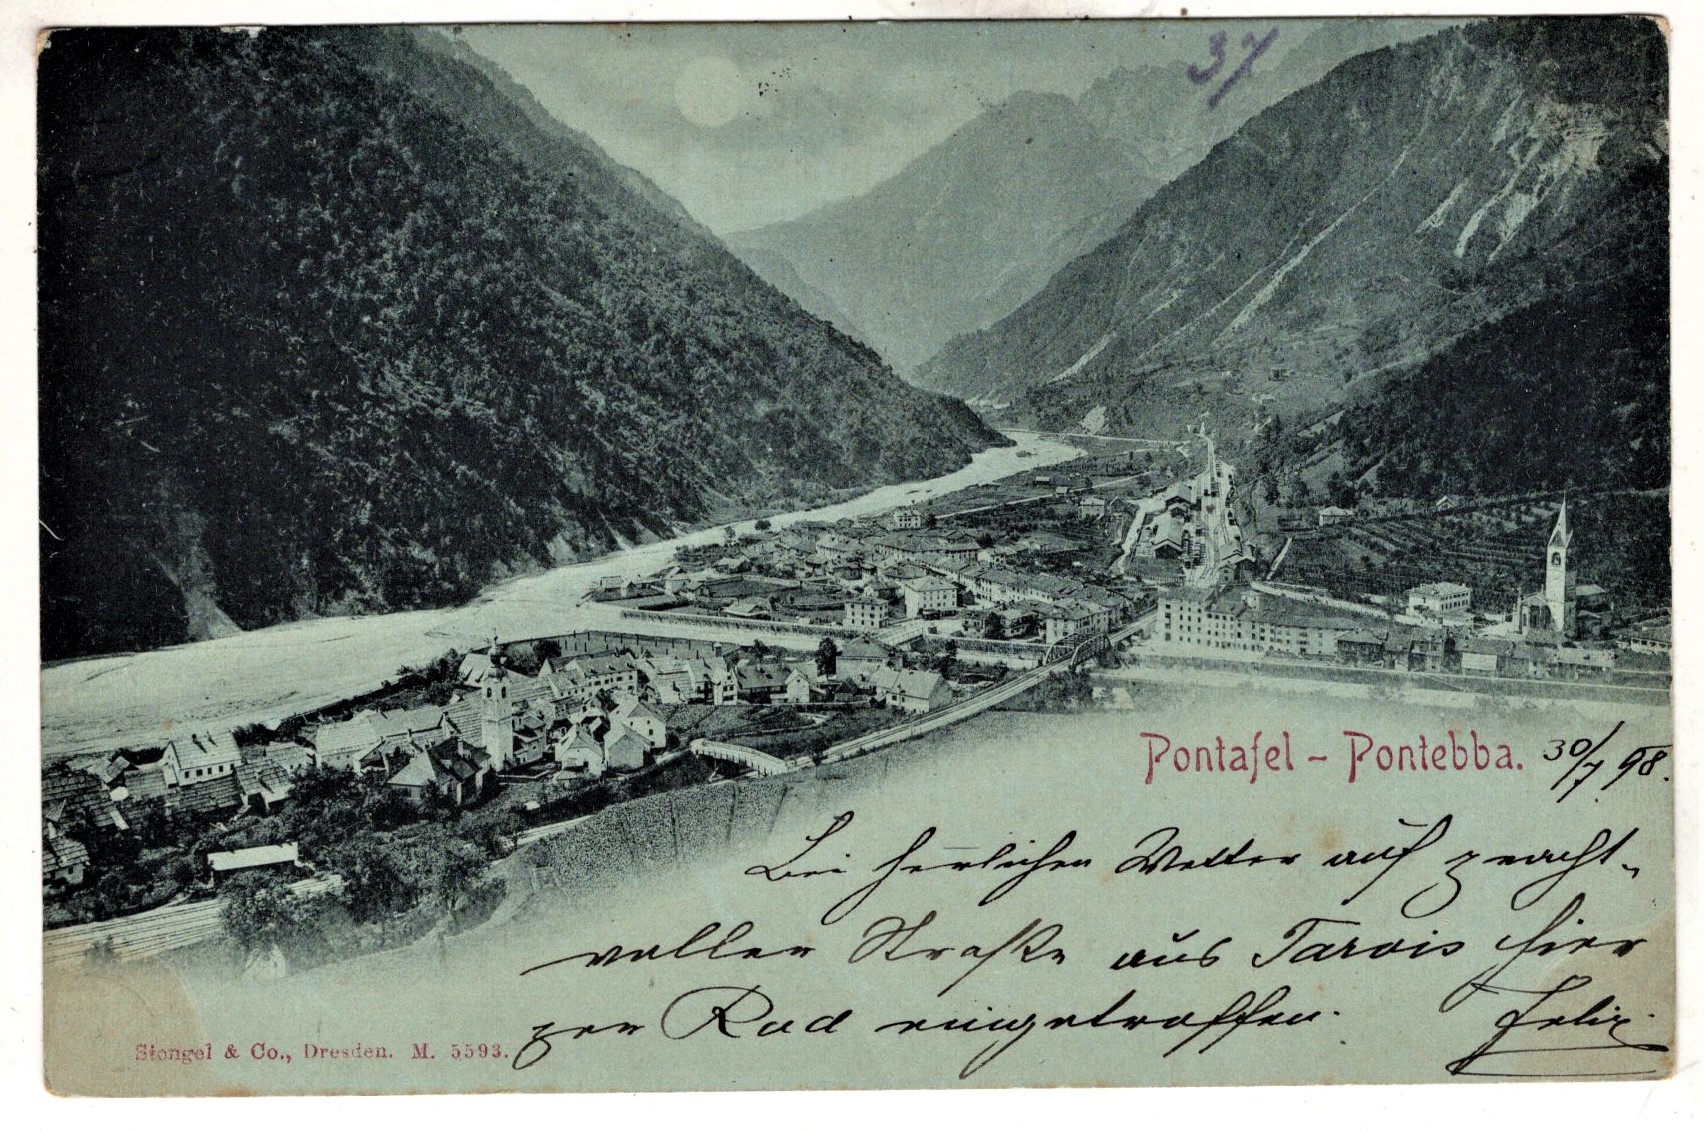 37
Pontafel - Pontebba.
30/7 98.
Bei herrlichem Wetter auf pracht-
voller Straße aus Tarvis hier
per Rad eingetroffen.
Felix.
Stengel & Co., Dresden. M. 5593.